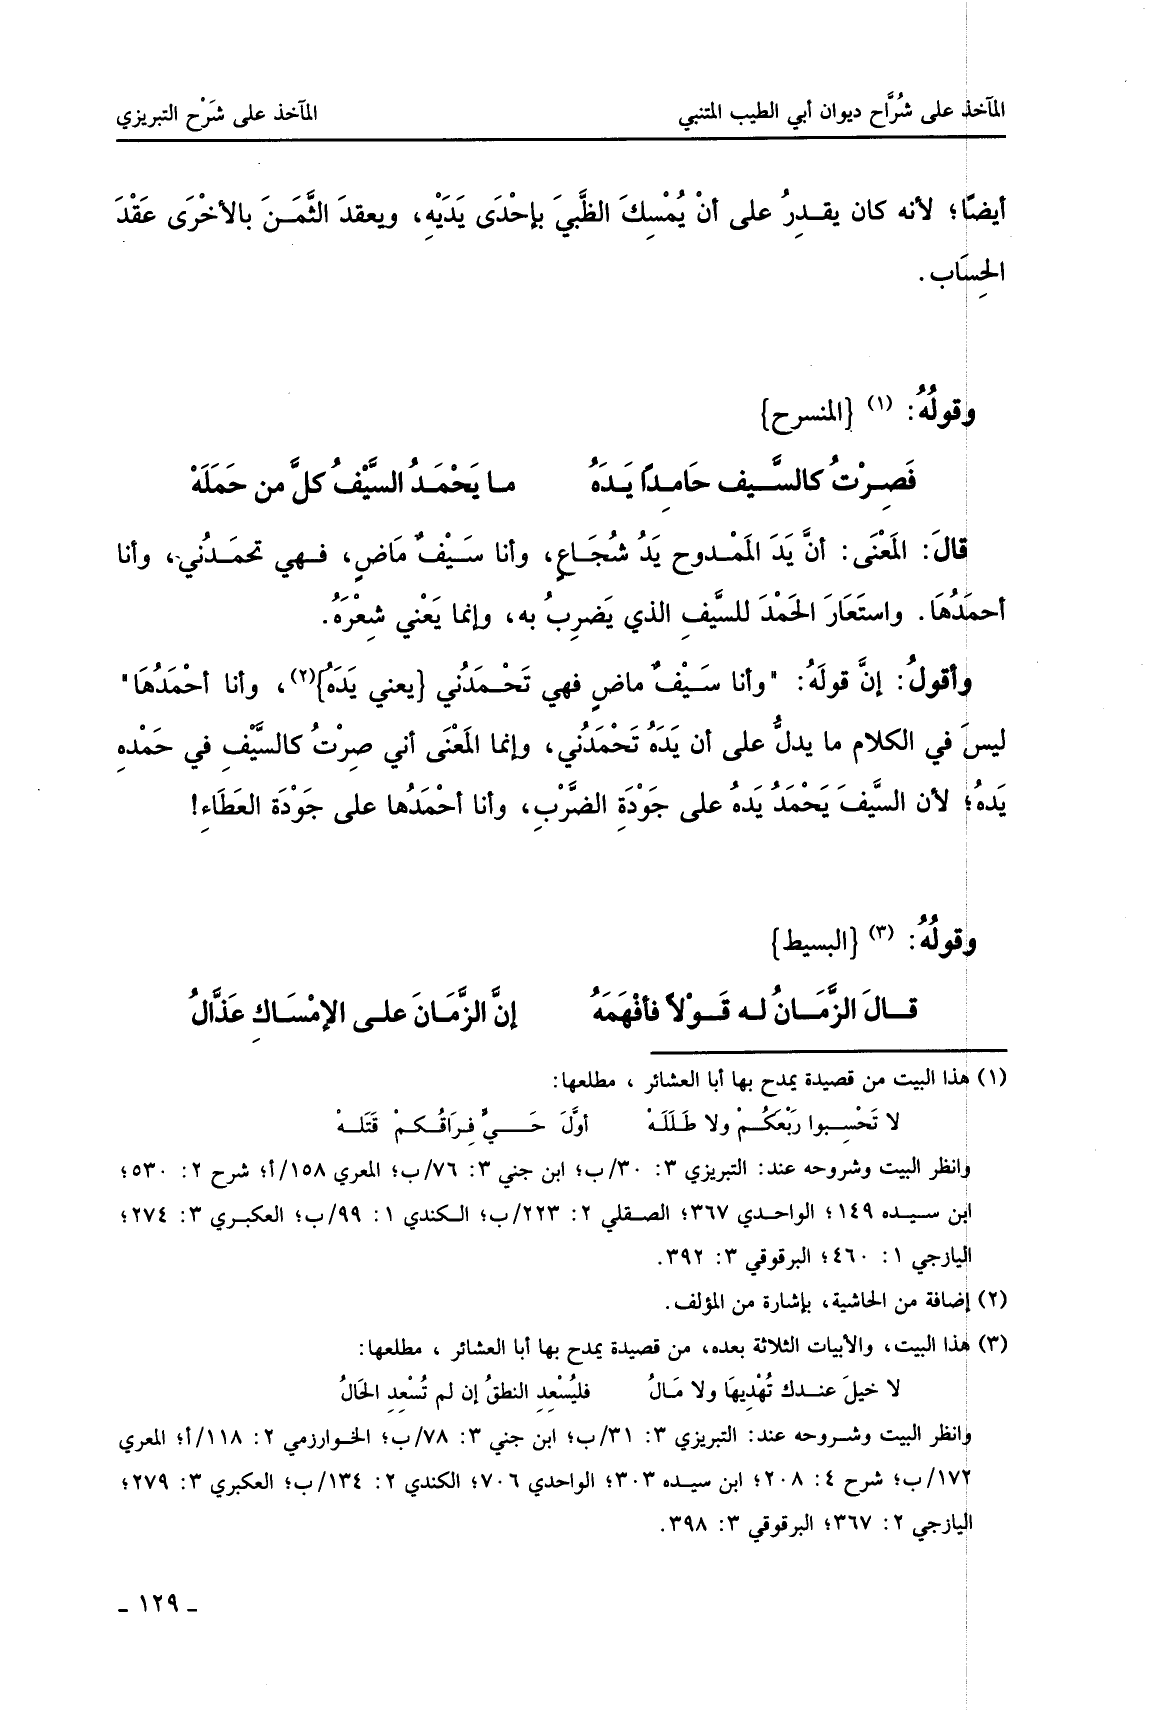 المآخذ على شُرَّاح ديوان أبي الطيب المتنبي المآخذ على شَرْح التبريزي
أيضًا؛ لأنه كان يقـدِرُ على أنْ يُمْسِكَ الظَّبيَ بإحْدَى يَدَيْهِ، ويعقدَ الثَّمَـنَ بالأخْرَى عَقْدَ
الحِسَاب.
وقولُهُ: (١) {المنسرح}
فَصِـرْتُ كالسَّـيف حَامِـدًا يَـدَهُ مـا يَحْمَـدُ السَّيْفُ كلَّ من حَمَلَهْ
قالَ: المَعْنَى: أنَّ يَدَ المَمْدوح يَدُ شُجَـاعٍ، وأنا سَـيْفٌ مَاضٍ، فـهي تحمَـدُني، وأنا
أحمَدُهَا. واستَعَارَ الحَمْدَ للسَّيفِ الذي يَضرِبُ به، وإنما يَعْني شِعْرَهُ.
وأقولُ: إنَّ قولَهُ: "وأنا سَـيْفٌ ماضٍ فهي تَحْـمَدُني {يعني يَدَهُ}(٢)، وأنا أحْمَدُهَا"
ليسَ في الكلام ما يدلُّ على أن يَدَهُ تَحْمَدُني، وإنما المَعْنَى أني صِرْتُ كالسَّيْفِ في حَمْدهِ
يَدهُ؛ لأن السَّيفَ يَحْمَدُ يَدهُ على جَوْدَةِ الضَّرْبِ، وأنا أحْمَدُها على جَوْدَة العَطَاءِ!
وقولُهُ: (٣) {البسيط}
قـالَ الزَّمَـانُ لـه قَـوْلاً فأفْهَمَهُ إنَّ الزَّمَـانَ علـى الإمْسَـاكِ عَذَّالُ
(١) هذا البيت من قصيدة يمدح بها أبا العشائر ، مطلعها:
لا تَحْسِـبوا رَبْعَكُـمْ ولا طَـلَلَـهْ أوَّلَ حَـــيٍّ فِـرَاقُـكـمْ قَتَلـهْ
وانظر البيت وشروحه عند: التبريزي ٣: ٣٠/ب؛ ابن جني ٣: ٧٦/ب؛ المعري ١٥٨/أ؛ شرح ٢: ٥٣٠؛
ابن سـيـده ١٤٩؛ الواحـدي ٣٦٧؛ الصـقلي ٢: ٢٢٣/ب؛ الـكندي ١: ٩٩/ب؛ العكبـري ٣: ٢٧٤؛
اليازجي ١: ٤٦٠؛ البرقوقي ٣: ٣٩٢.
(٢) إضافة من الحاشية، بإشارة من المؤلف.
(٣) هذا البيت، والأبيات الثلاثة بعده، من قصيدة يمدح بها أبا العشائر ، مطلعها:
لا خيلَ عنـدك تُهْدِيهَا ولا مَـالُ فليُسْعِدِ النطقُ إن لم تُسْعِدِ الحَالُ
وانظر البيت وشـروحه عند: التبريزي ٣: ٣١/ب؛ ابن جني ٣: ٧٨/ب؛ الخـوارزمي ٢: ١١٨/أ؛ المعري
١٧٢/ب؛ شرح ٤: ٢٠٨؛ ابن سيـده ٣٠٣؛ الواحدي ٧٠٦؛ الكندي ٢: ١٣٤/ب؛ العكبري ٣: ٢٧٩؛
اليازجي ٢: ٣٦٧؛ البرقوقي ٣: ٣٩٨.
ـ ١٢٩ ـ